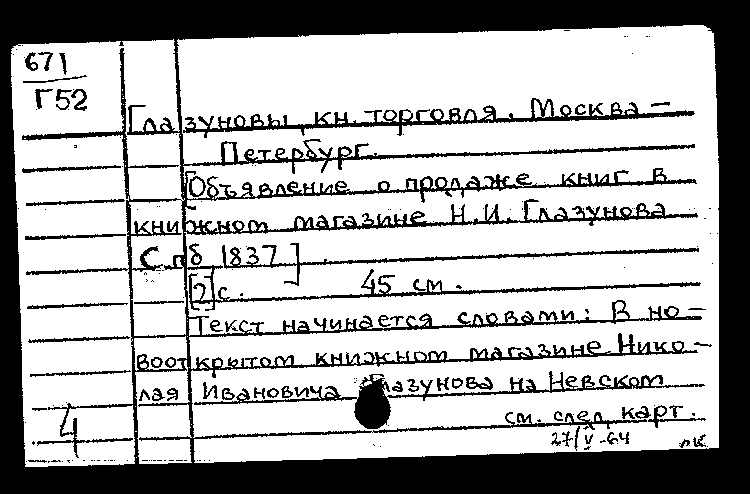 671
Г52
Глазуновы, кн. торговля. Москва –
Петербург.
[Объявление о продаже книг в
книжном магазине Н.И. Глазунова
Спб 1837].
[2] с. 45 см.
Текст начинается словами: В но-
воот крытом книжном магазине Нико-
лая Ивановича Глазунова на Невском
см. след. карт.
4
27/V-64 лк